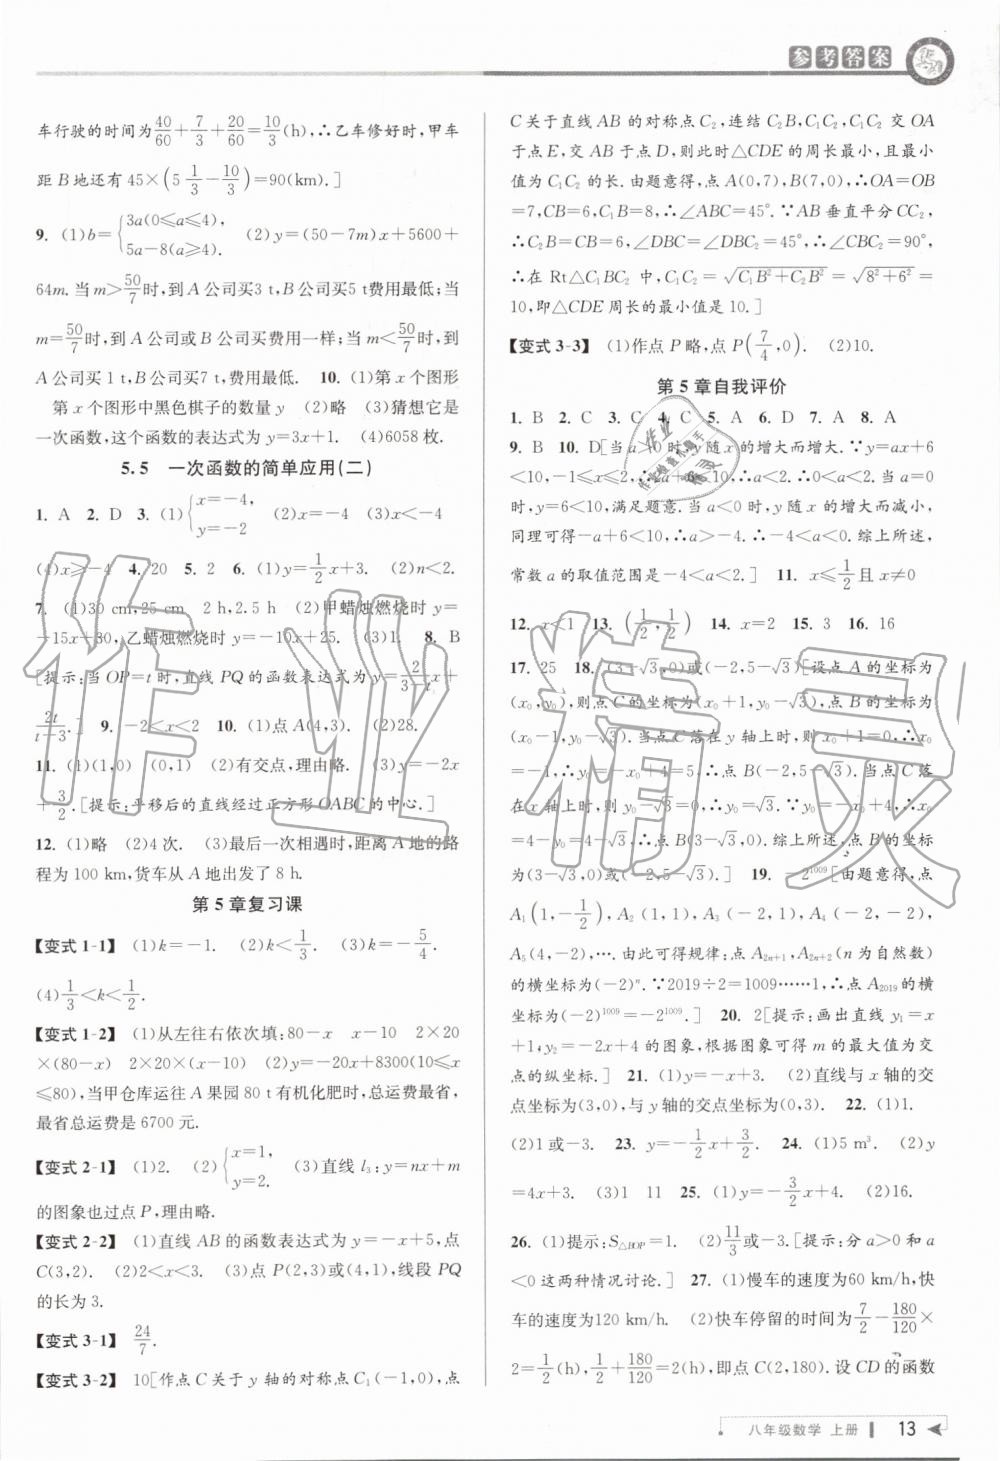 参考答案
车行驶的时间为40/60+7/3+20/60=10/3(h),∴乙车修好时,甲车
距B地还有45×(5 1/3-10/3)=90(km).]
9. (1)b={3a(0≤a≤4), 5a-8(a≥4). (2)y=(50-7m)x+5600+
64m. 当m>50/7时,到A公司买3 t,B公司买5 t费用最低;当
m=50/7时,到A公司或B公司买费用一样;当m<50/7时,到
A公司买1 t,B公司买7 t,费用最低. 10. (1)第x个图形
第x个图形中黑色棋子的数量y (2)略 (3)猜想它是
一次函数,这个函数的表达式为y=3x+1. (4)6058枚.
5.5 一次函数的简单应用(二)
1. A 2. D 3. (1){x=-4, y=-2 (2)x=-4 (3)x<-4
(4)x≥-4 4. 20 5. 2 6. (1)y=1/2x+3. (2)n<2.
7. (1)30 cm,25 cm 2 h,2.5 h (2)甲蜡烛燃烧时y=
-15x+30,乙蜡烛燃烧时y=-10x+25. (3)1. 8. B
[提示:当OP=t时,直线PQ的函数表达式为y=2/(3-t)x+
2t/(t-3). 9. -2<x<2 10. (1)点A(4,3). (2)28.
11. (1)(1,0) (0,1) (2)有交点,理由略. (3)y=-2x
+3/2.[提示:平移后的直线经过正方形OABC的中心.]
12. (1)略 (2)4次. (3)最后一次相遇时,距离A地的路
程为100 km,货车从A地出发了8 h.
第5章复习课
【变式1-1】 (1)k=-1. (2)k<1/3. (3)k=-5/4.
(4)1/3<k<1/2.
【变式1-2】 (1)从左往右依次填:80-x x-10 2×20
×(80-x) 2×20×(x-10) (2)y=-20x+8300(10≤x
≤80),当甲仓库运往A果园80 t有机化肥时,总运费最省,
最省总运费是6700元.
【变式2-1】 (1)2. (2){x=1, y=2. (3)直线l₃:y=nx+m
的图象也过点P,理由略.
【变式2-2】 (1)直线AB的函数表达式为y=-x+5,点
C(3,2). (2)2<x<3. (3)点P(2,3)或(4,1),线段PQ
的长为3.
【变式3-1】 24/7.
【变式3-2】 10[作点C关于y轴的对称点C₁(-1,0),点
C关于直线AB的对称点C₂,连结C₂B,C₁C₂,C₁C₂交OA
于点E,交AB于点D,则此时△CDE的周长最小,且最小
值为C₁C₂的长. 由题意得,点A(0,7),B(7,0),∴OA=OB
=7,CB=6,C₁B=8,∴∠ABC=45°. ∵AB垂直平分CC₂,
∴C₂B=CB=6,∠DBC=∠DBC₂=45°,∴∠CBC₂=90°,
∴在Rt△C₁BC₂中,C₁C₂=√(C₁B²+C₂B²)=√(8²+6²)=
10,即△CDE周长的最小值是10.]
【变式3-3】 (1)作点P略,点P(7/4,0). (2)10.
第5章自我评价
1. B 2. C 3. C 4. C 5. A 6. D 7. A 8. A
9. B 10. D[当a>0时,y随x的增大而增大. ∵y=ax+6
<10,-1≤x≤2,∴2a+6<10,∴a<2. ∴0<a<2. 当a=0
时,y=6<10,满足题意. 当a<0时,y随x的增大而减小,
同理可得-a+6<10,∴a>-4. ∴-4<a<0. 综上所述,
常数a的取值范围是-4<a<2.] 11. x≤1/2且x≠0
12. x<1 13. (1/2,1/2) 14. x=2 15. 3 16. 16
17. 25 18. (3+√3,0)或(-2,5-√3)[设点A的坐标为
(x₀,y₀),则点C的坐标为(x₀+1,y₀-√3),点B的坐标为
(x₀-1,y₀-√3). 当点C落在y轴上时,则x₀+1=0,∴x₀
=-1,∴y₀=-x₀+4=5,∴点B(-2,5-√3). 当点C落
在x轴上时,则y₀-√3=0,∴y₀=√3. ∵y₀=-x₀+4,∴x₀
=4-y₀=4-√3,∴点B(3-√3,0). 综上所述,点B的坐标
为(3-√3,0)或(-2,5-√3).] 19. -2¹⁰⁰⁹[由题意得,点
A₁(1,-1/2),A₂(1,1),A₃(-2,1),A₄(-2,-2),
A₅(4,-2),…. 由此可得规律:点A₂ₙ₊₁,A₂ₙ₊₂(n为自然数)
的横坐标为(-2)ⁿ. ∵2019÷2=1009……1,∴点A₂₀₁₉的横
坐标为(-2)¹⁰⁰⁹=-2¹⁰⁰⁹.] 20. 2[提示:画出直线y₁=x
+1,y₂=-2x+4的图象,根据图象可得m的最大值为交
点的纵坐标.] 21. (1)y=-x+3. (2)直线与x轴的交
点坐标为(3,0),与y轴的交点坐标为(0,3). 22. (1)1.
(2)1或-3. 23. y=-1/2x+3/2. 24. (1)5 m³. (2)y
=4x+3. (3)1 11 25. (1)y=-3/2x+4. (2)16.
26. (1)提示:S△BOP=1. (2)11/3或-3.[提示:分a>0和a
<0这两种情况讨论.] 27. (1)慢车的速度为60 km/h,快
车的速度为120 km/h. (2)快车停留的时间为7/2-180/120×
2=1/2(h),1/2+180/120=2(h),即点C(2,180). 设CD的函数
八年级数学 上册 13
作业精灵